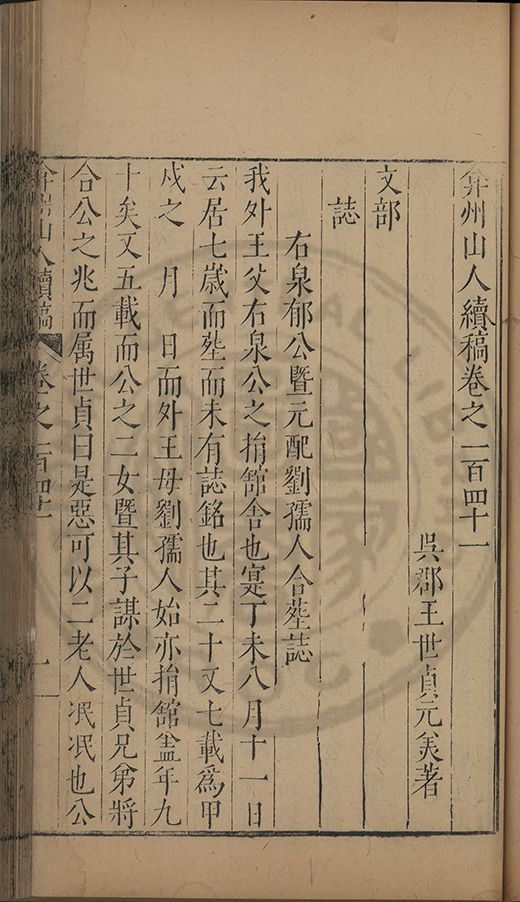 弇州山人續稿卷之一百四十一
吳郡王世貞元美著
文部
誌
右泉郁公暨元配劉孺人合塟誌
我外王父右泉公之捐舘舍也寔丁未八月十一日
云居七歲而塟而未有誌銘也其二十又七載爲甲
戌之　月　日而外王母劉孺人始亦捐舘盖年九
十矣又五載而公之二女暨其子謀於世貞兄弟將
合公之兆而属世貞曰是惡可以二老人冺冺也公
弇州山人續稿 卷之一百四十一 一